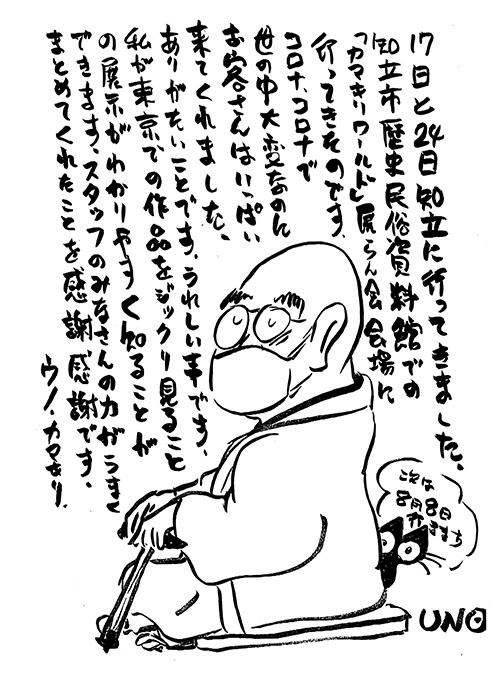 17日と24日知立に行ってきました、
知立市歴史民俗資料館での
「カマキリワールド」展らん会会場に
行ってきたのです、
コロナ、コロナで
世の中大変なのに
お客さんはいっぱい
来てくれました、
ありがたいことです、うれしい事です、
私が東京での作品をジックリ見ること
の展示がわかりやすく知ることが
できます、スタッフのみなさんの力がうまく
まとめてくれたことを感謝感謝です、
ウノ・カマキリ、
次は
8月8日
行きます
UNO